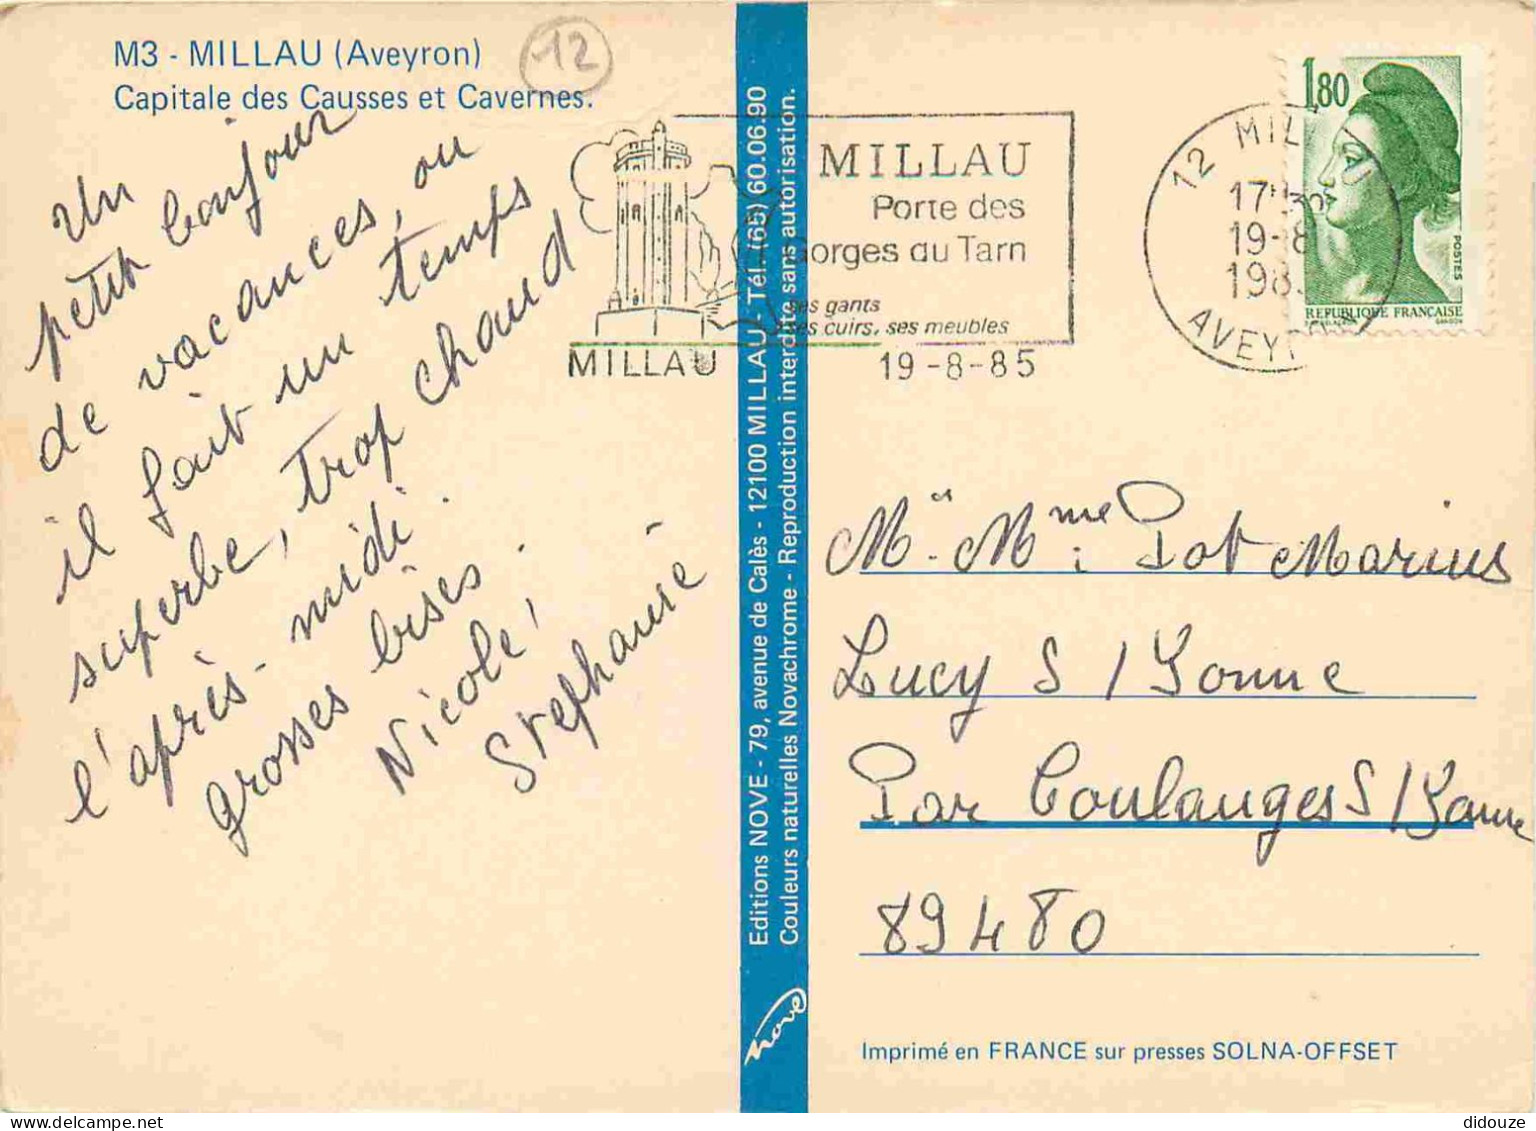 M3 - MILLAU (Aveyron)
Capitale des Causses et Cavernes.
12
Un
petit bonjour
de vacances, ou
il fait un temps
superbe, trop chaud
l'après-midi.
grosses bises.
Nicole,
Stephanie
MILLAU
Porte des
Gorges du Tarn
ses gants
ses cuirs, ses meubles
MILLAU
19-8-85
12 MILLAU
17H30
19-8
198
AVEYRON
1,80
POSTES
REPUBLIQUE FRANÇAISE
GANDON
Editions NOVE - 79, avenue de Calès - 12100 MILLAU - Tél. (65) 60.06.90
Couleurs naturelles Novachrome - Reproduction interdite sans autorisation.
nove
Mr et Mme Pot Marius
Lucy S/Yonne
Par Coulanges S/Yonne
89480
Imprimé en FRANCE sur presses SOLNA-OFFSET
didouze